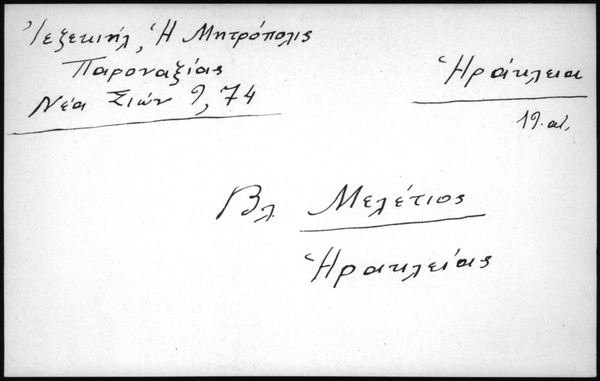 Ἰεζεκιήλ, Ἡ Μητρόπολις
Παροναξίας
Νέα Σιών 9, 74
Ἡράκλεια
19. αἰ.
Βλ Μελέτιος
Ἡρακλείας